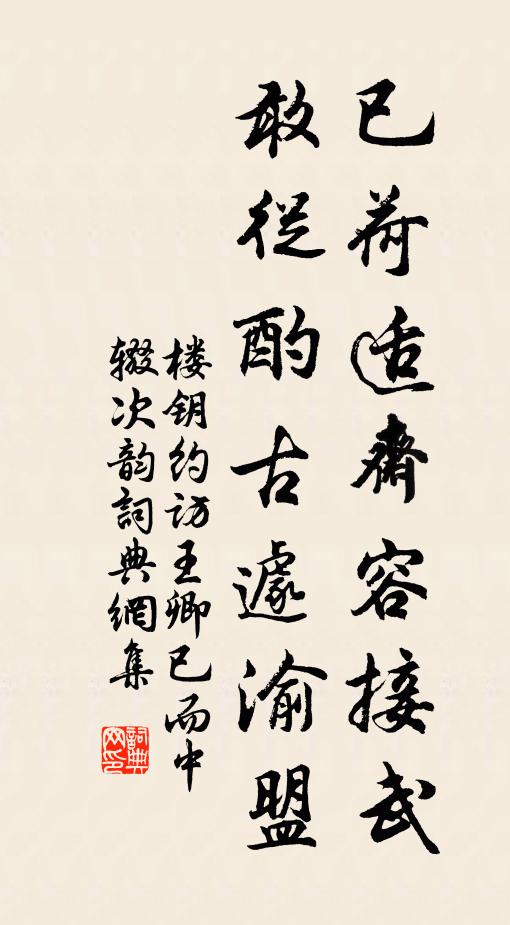 已荷适齋容接武
敢從酌古遽渝盟
楼钥约访王卿已而中
辍次韵詞典網集
詞典網印